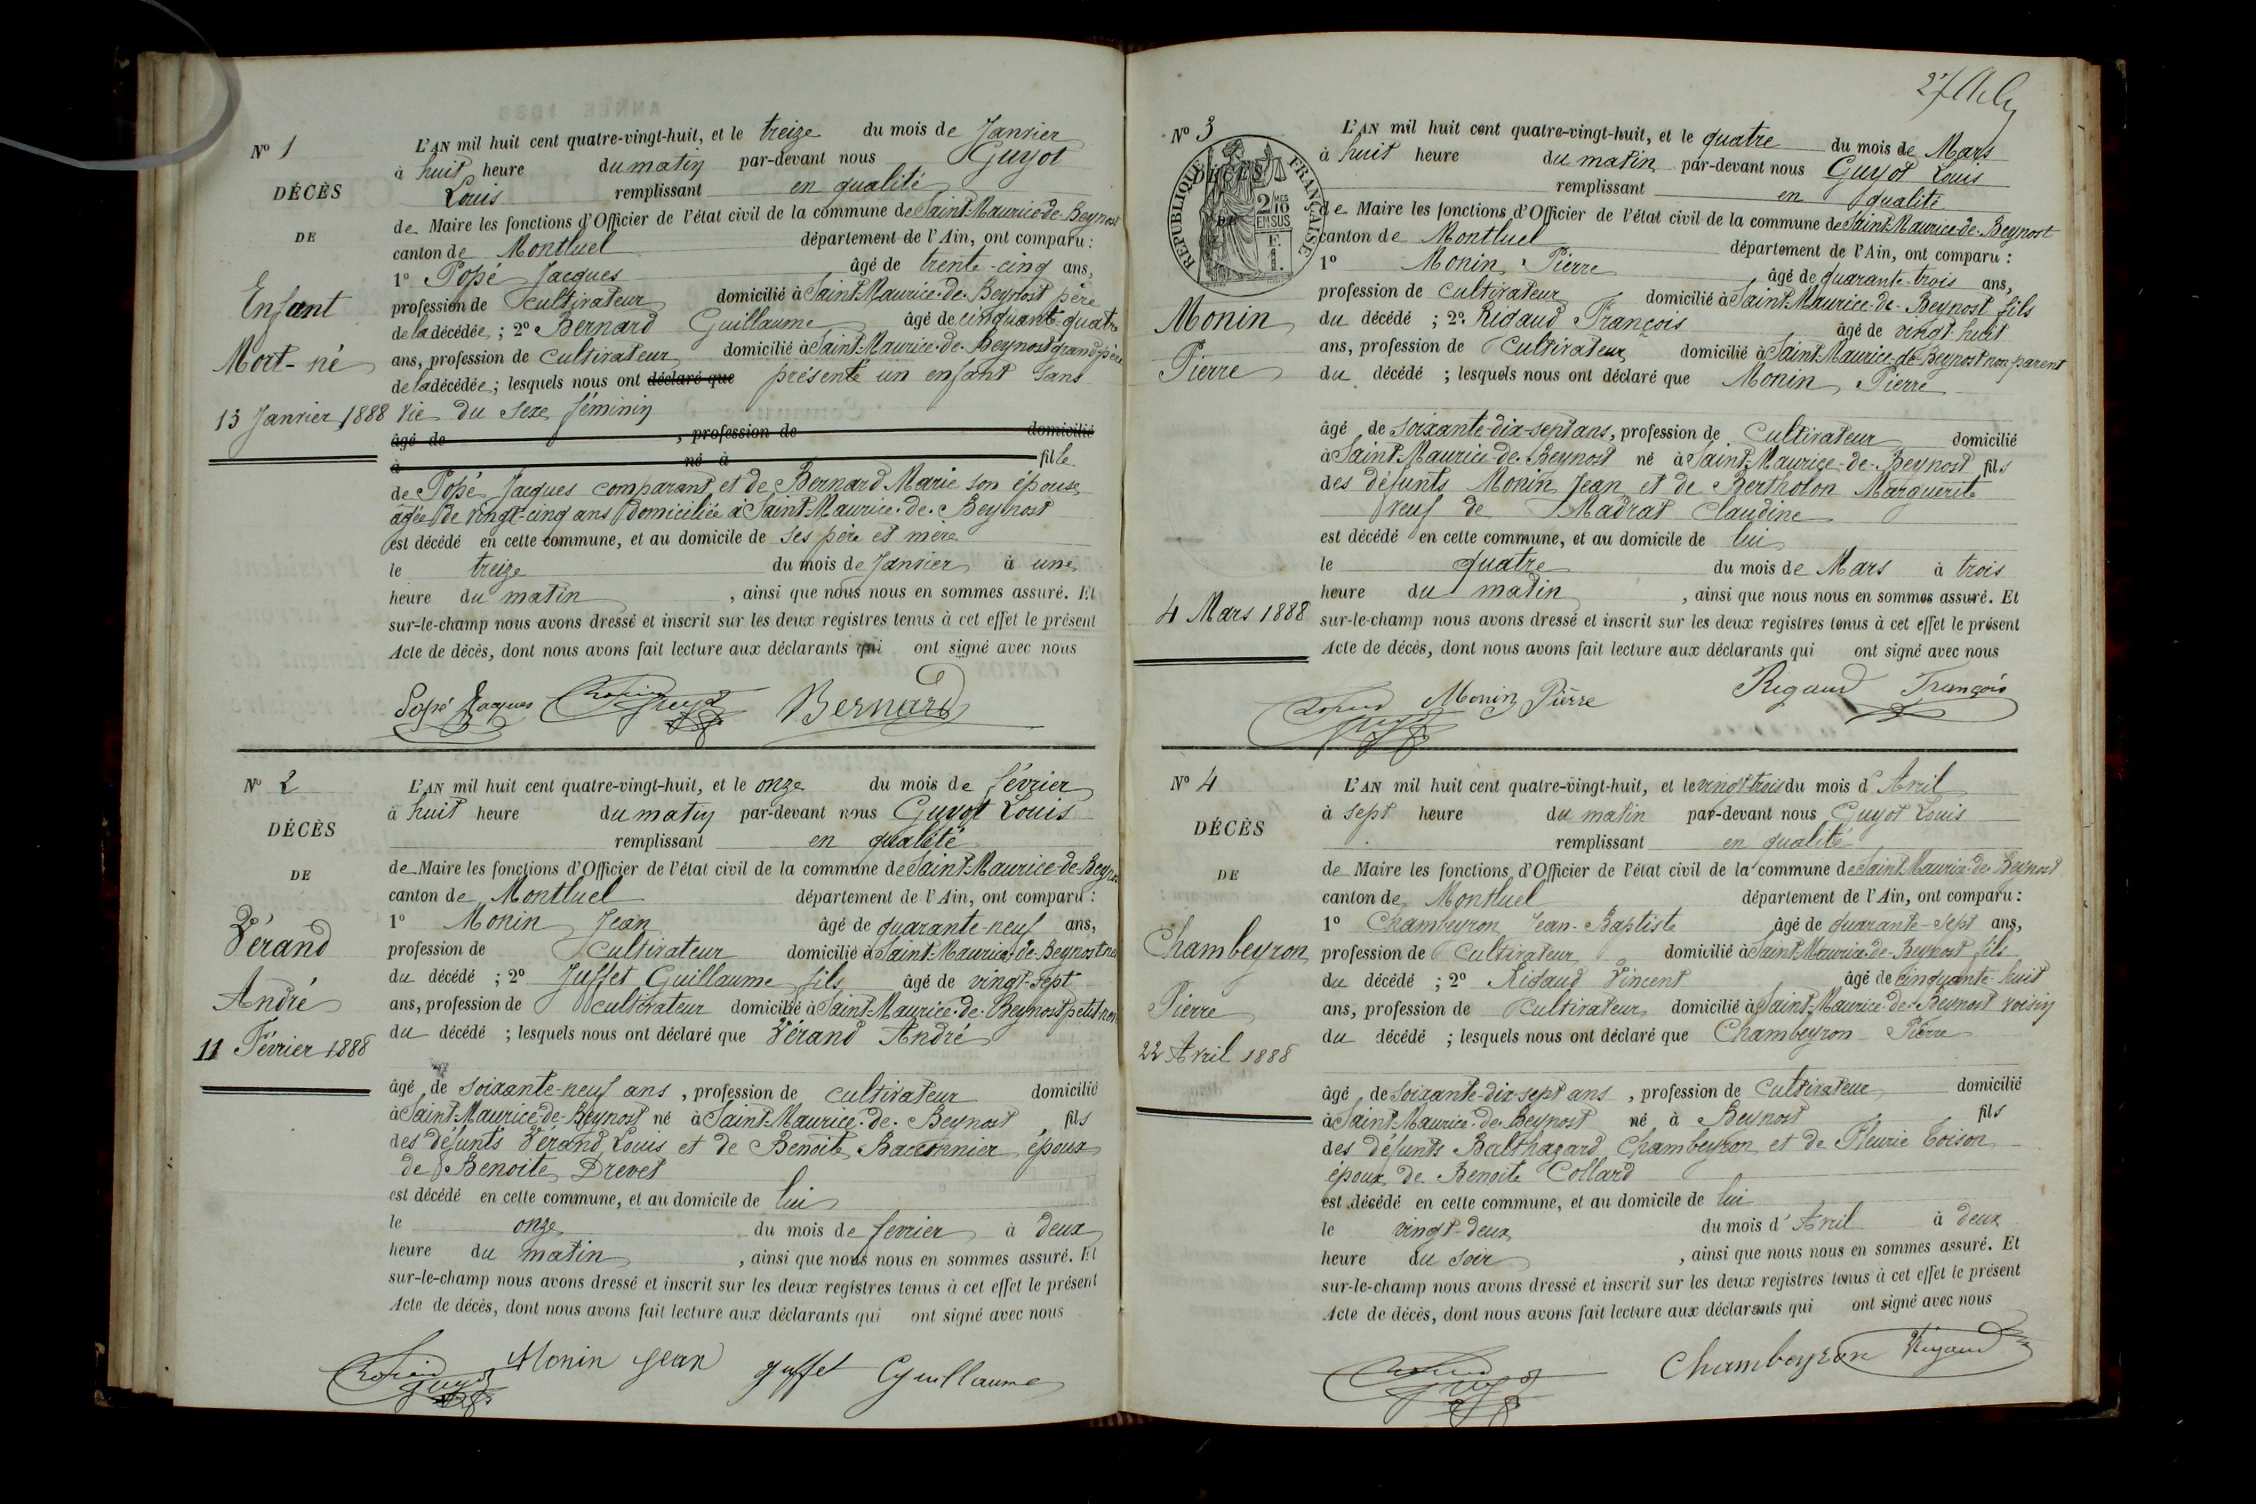 N° 1
DÉCÈS
DE
Enfant
Mort-né
13 Janvier 1888
L'AN mil huit cent quatre-vingt-huit, et le treize du mois de Janvier
à huit heure du matin par-devant nous Guyot
Louis remplissant en qualité
de Maire les fonctions d'Officier de l'état civil de la commune de Saint-Maurice-de-Beynost
canton de Montluel département de l'Ain, ont comparu :
1° Popé Jacques âgé de trente-cinq ans,
profession de cultivateur domicilié à Saint-Maurice-de-Beynost père
de la décédée ; 2° Bernard Guillaume âgé de cinquante-quatre
ans, profession de cultivateur domicilié à Saint-Maurice-de-Beynost grand père
de la décédée ; lesquels nous ont déclaré que présenté un enfant sans
vie du sexe féminin
âgé de , profession de domicilié
à né à fille
de Popé Jacques comparant et de Bernard Marie son épouse
âgée de vingt-cinq ans domiciliée à Saint-Maurice-de-Beynost
est décédé en cette commune, et au domicile de ses père et mère
le treize du mois de Janvier à une
heure du matin , ainsi que nous nous en sommes assuré. Et
sur-le-champ nous avons dressé et inscrit sur les deux registres tenus à cet effet le présent
Acte de décès, dont nous avons fait lecture aux déclarants qui ont signé avec nous
Popé Jacques Guyot Bernard
N° 2
DÉCÈS
DE
Vérand
André
11 Février 1888
L'AN mil huit cent quatre-vingt-huit, et le onze du mois de février
à huit heure du matin par-devant nous Guyot Louis
remplissant en qualité
de Maire les fonctions d'Officier de l'état civil de la commune de Saint-Maurice-de-Beynost
canton de Montluel département de l'Ain, ont comparu :
1° Monin Jean âgé de quarante-neuf ans,
profession de cultivateur domicilié à Saint-Maurice-de-Beynost
du décédé ; 2° Juffet Guillaume fils âgé de vingt-sept
ans, profession de cultivateur domicilié à Saint-Maurice-de-Beynost petit
du décédé ; lesquels nous ont déclaré que Vérand André
âgé de soixante-neuf ans , profession de cultivateur domicilié
à Saint-Maurice-de-Beynost né à Saint-Maurice-de-Beynost fils
des défunts Vérand Louis et de Benoite Baconnier époux
de Benoite Drevet
est décédé en cette commune, et au domicile de lui
le onze du mois de fevrier à deux
heure du matin , ainsi que nous nous en sommes assuré. Et
sur-le-champ nous avons dressé et inscrit sur les deux registres tenus à cet effet le présent
Acte de décès, dont nous avons fait lecture aux déclarants qui ont signé avec nous
Guyot Monin Jean Juffet Guillaume
N° 3
DÉCÈS
DE
RÉPUBLIQUE FRANÇAISE
2/10 MES
EN SUS
Monin
Pierre
4 Mars 1888
L'AN mil huit cent quatre-vingt-huit, et le quatre du mois de Mars
à huit heure du matin par-devant nous Guyot Louis
remplissant en qualité
de Maire les fonctions d'Officier de l'état civil de la commune de Saint-Maurice-de-Beynost
canton de Montluel département de l'Ain, ont comparu :
1° Monin Pierre âgé de quarante-trois ans,
profession de cultivateur domicilié à Saint-Maurice-de-Beynost fils
du décédé ; 2° Rigaud François âgé de vingt-huit
ans, profession de cultivateur domicilié à Saint-Maurice-de-Beynost non parent
du décédé ; lesquels nous ont déclaré que Monin Pierre
âgé de soixante-dix-sept ans, profession de cultivateur domicilié
à Saint-Maurice-de-Beynost né à Saint-Maurice-de-Beynost fils
des défunts Monin Jean et de Bertholon Marguerite
veuf de Madrat Claudine
est décédé en cette commune, et au domicile de lui
le quatre du mois de Mars à trois
heure du matin , ainsi que nous nous en sommes assuré. Et
sur-le-champ nous avons dressé et inscrit sur les deux registres tenus à cet effet le présent
Acte de décès, dont nous avons fait lecture aux déclarants qui ont signé avec nous
Guyot Monin Pierre Rigaud François
N° 4
DÉCÈS
DE
Chambeyron
Pierre
22 Avril 1888
L'AN mil huit cent quatre-vingt-huit, et le vingt-trois du mois d'Avril
à sept heure du matin par-devant nous Guyot Louis
remplissant en qualité
de Maire les fonctions d'Officier de l'état civil de la commune de Saint-Maurice-de-Beynost
canton de Montluel département de l'Ain, ont comparu :
1° Chambeyron Jean-Baptiste âgé de quarante-sept ans,
profession de cultivateur domicilié à Saint-Maurice-de-Beynost fils
du décédé ; 2° Rigaud Vincent âgé de cinquante-huit
ans, profession de cultivateur domicilié à Saint-Maurice-de-Beynost voisin
du décédé ; lesquels nous ont déclaré que Chambeyron Pierre
âgé de soixante-dix-sept ans , profession de cultivateur domicilié
à Saint-Maurice-de-Beynost né à Beynost fils
des défunts Balthazard Chambeyron et de Fleurie Toison
époux de Benoite Collard
est décédé en cette commune, et au domicile de lui
le vingt-deux du mois d'Avril à deux
heure du soir , ainsi que nous nous en sommes assuré. Et
sur-le-champ nous avons dressé et inscrit sur les deux registres tenus à cet effet le présent
Acte de décès, dont nous avons fait lecture aux déclarants qui ont signé avec nous
Guyot Chambeyron Rigaud